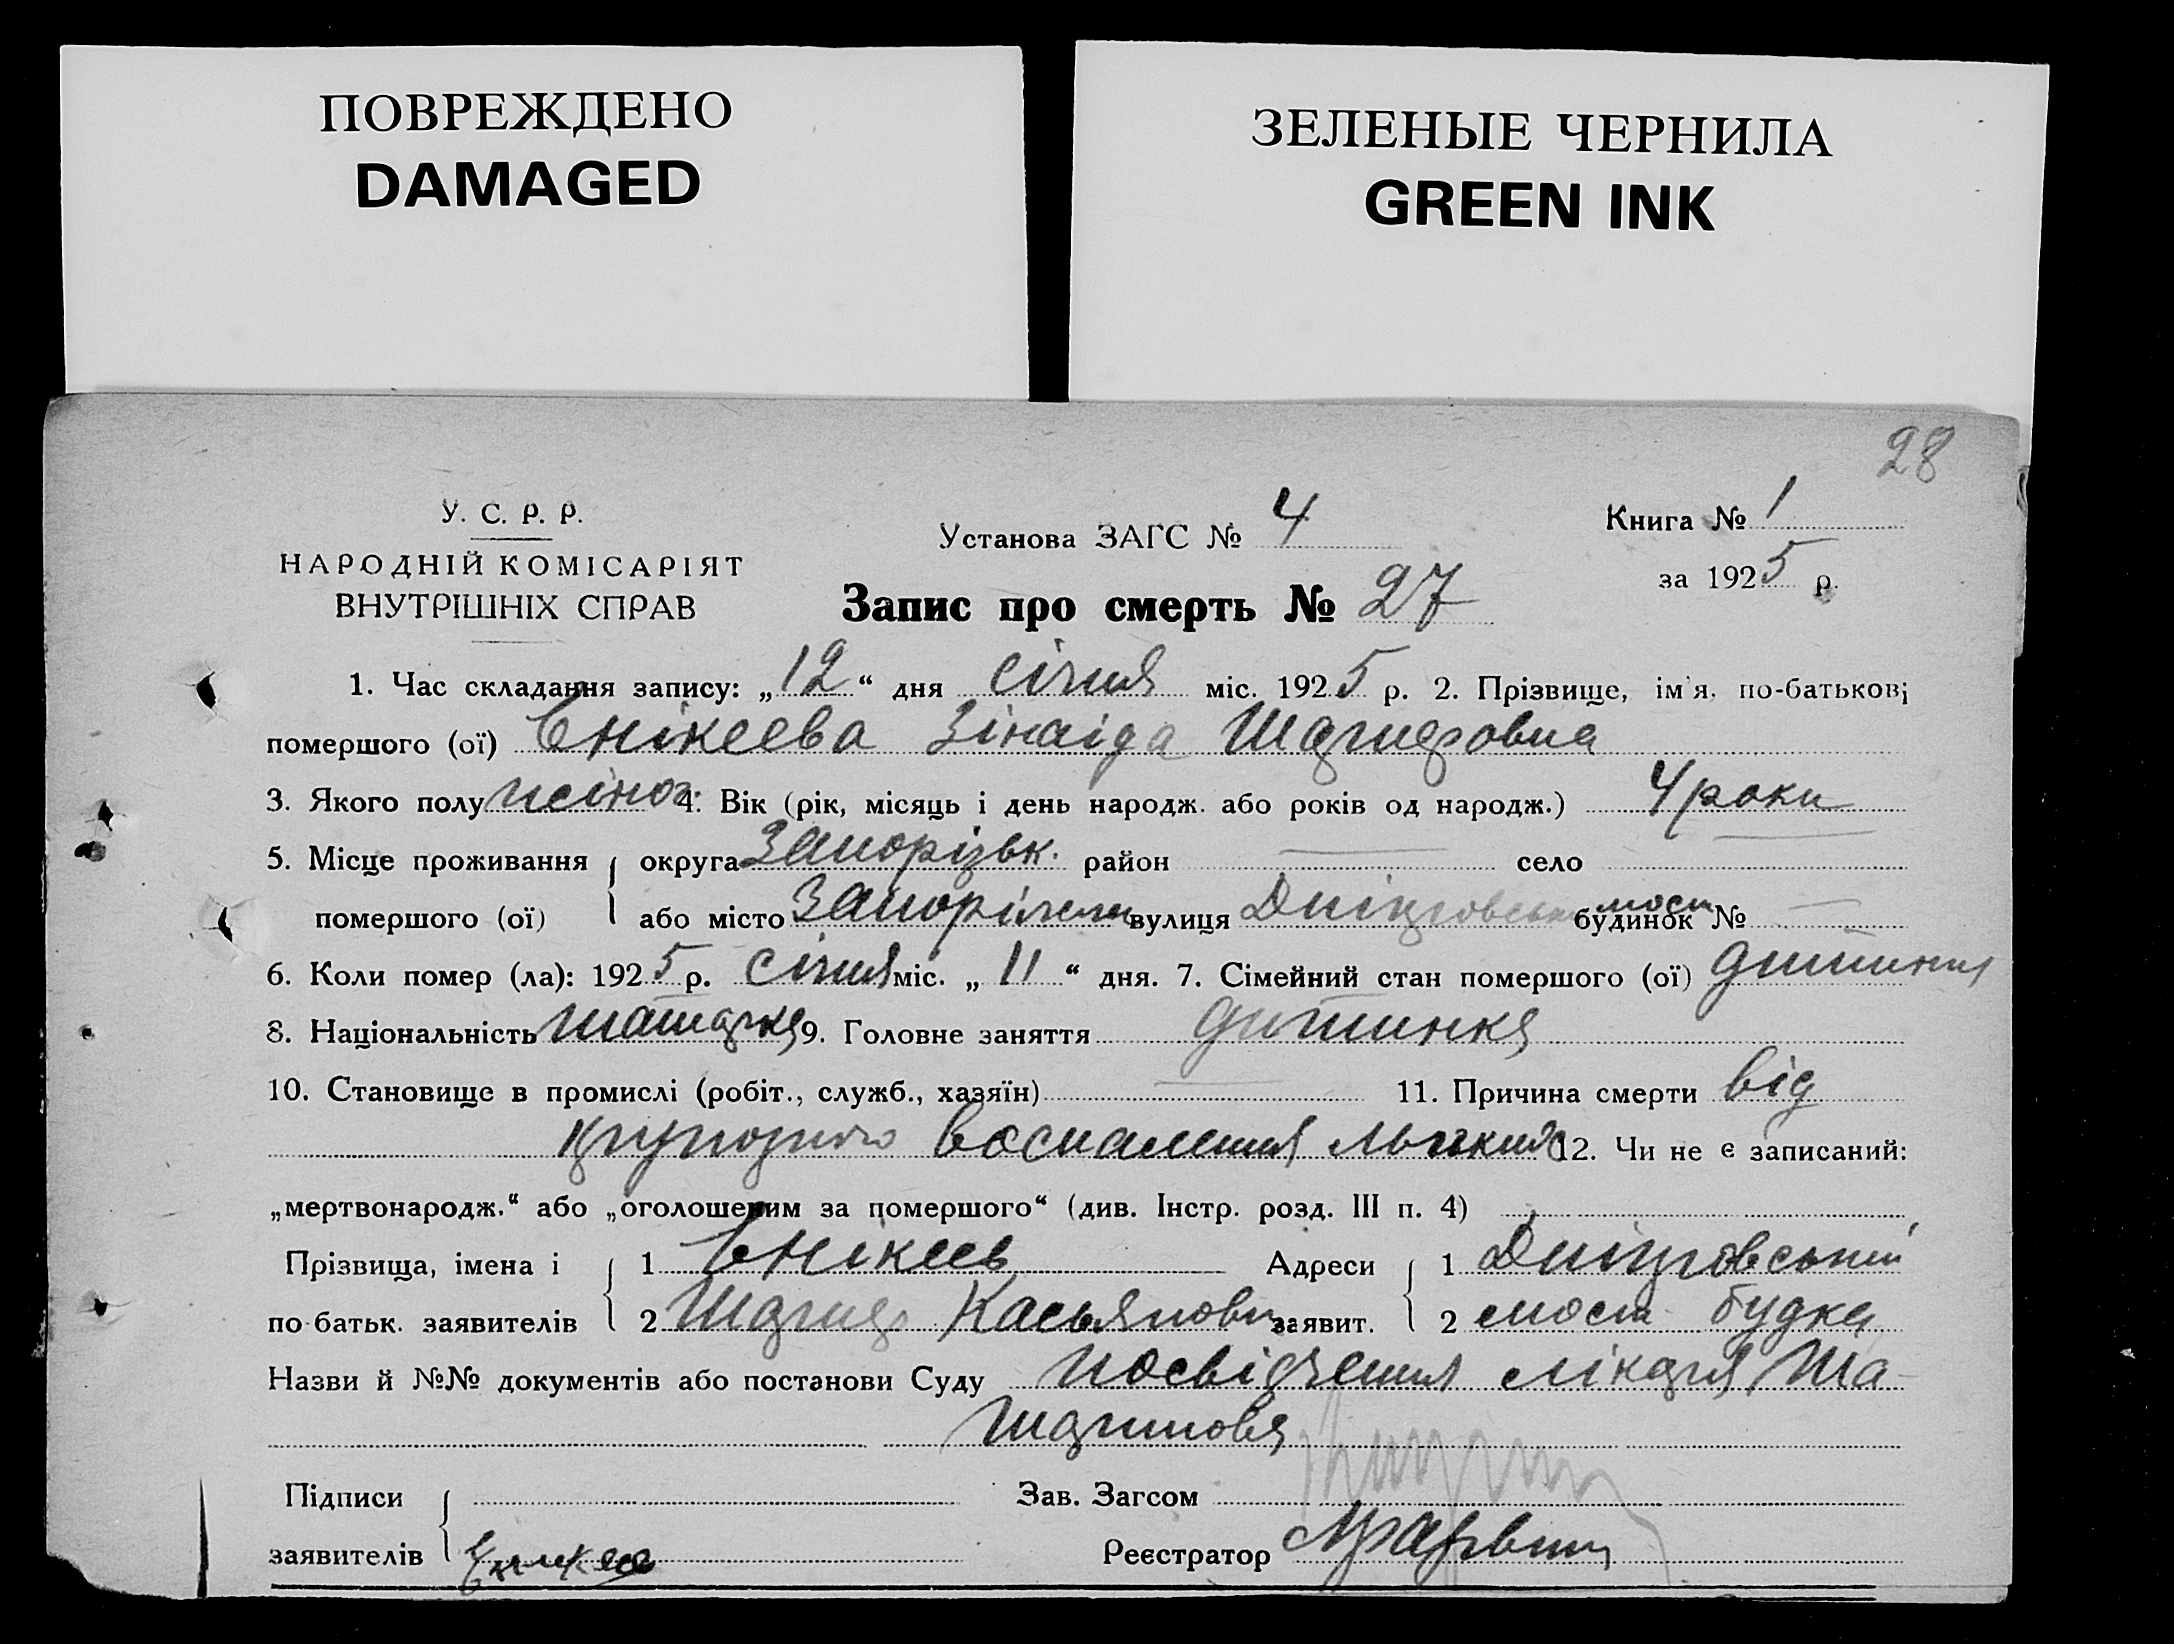 ПОВРЕЖДЕНО
DAMAGED
ЗЕЛЕНЫЕ ЧЕРНИЛА
GREEN INK
28
У. С. Р. Р.
НАРОДНІЙ КОМІСАРІЯТ
ВНУТРІШНІХ СПРАВ
Установа ЗАГС № 4
Книга № 1
за 1925 р.
Запис про смерть № 27
1. Час складання запису: „12“ дня січня міс. 1925 р. 2. Прізвище, ім'я, по-батькові
помершого (ої) Єнікеева Зінаіда Шагировна
3. Якого полу жіноч. 4. Вік (рік, місяць і день народж. або років од народж.) 4 роки
5. Місце проживання { округа Запорізьк. район — село —
помершого (ої) або місто Запоріжжя вулиця Дніпровський мост будинок № —
6. Коли помер (ла): 1925 р. січня міс. „11“ дня. 7. Сімейний стан помершого (ої) дитинка
8. Національність татарка 9. Головне заняття дитинка
10. Становище в промислі (робіт., служб., хазяїн) — 11. Причина смерти від
крупозного воспалення льогких 12. Чи не є записаний:
„мертвонародж.“ або „оголошеним за помершого“ (див. Інстр. розд. III п. 4)
Прізвища, імена і { 1 Єнікеев Адреси { 1 Дніпровський
по-батьк. заявителів 2 Шагир Касьянович заявит. 2 мост будка
Назви й №№ документів або постанови Суду посвідчення лікаря Ша-
Підписи Зав. Загсом
заявителів Еникеев Реєстратор